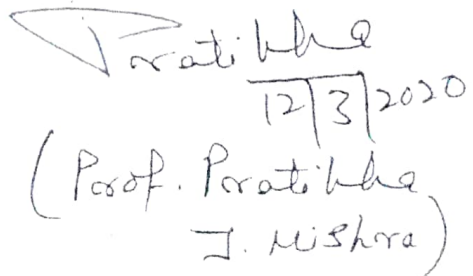 Pratibha
12/3/2020
(Prof. Pratibha
J. Mishra)